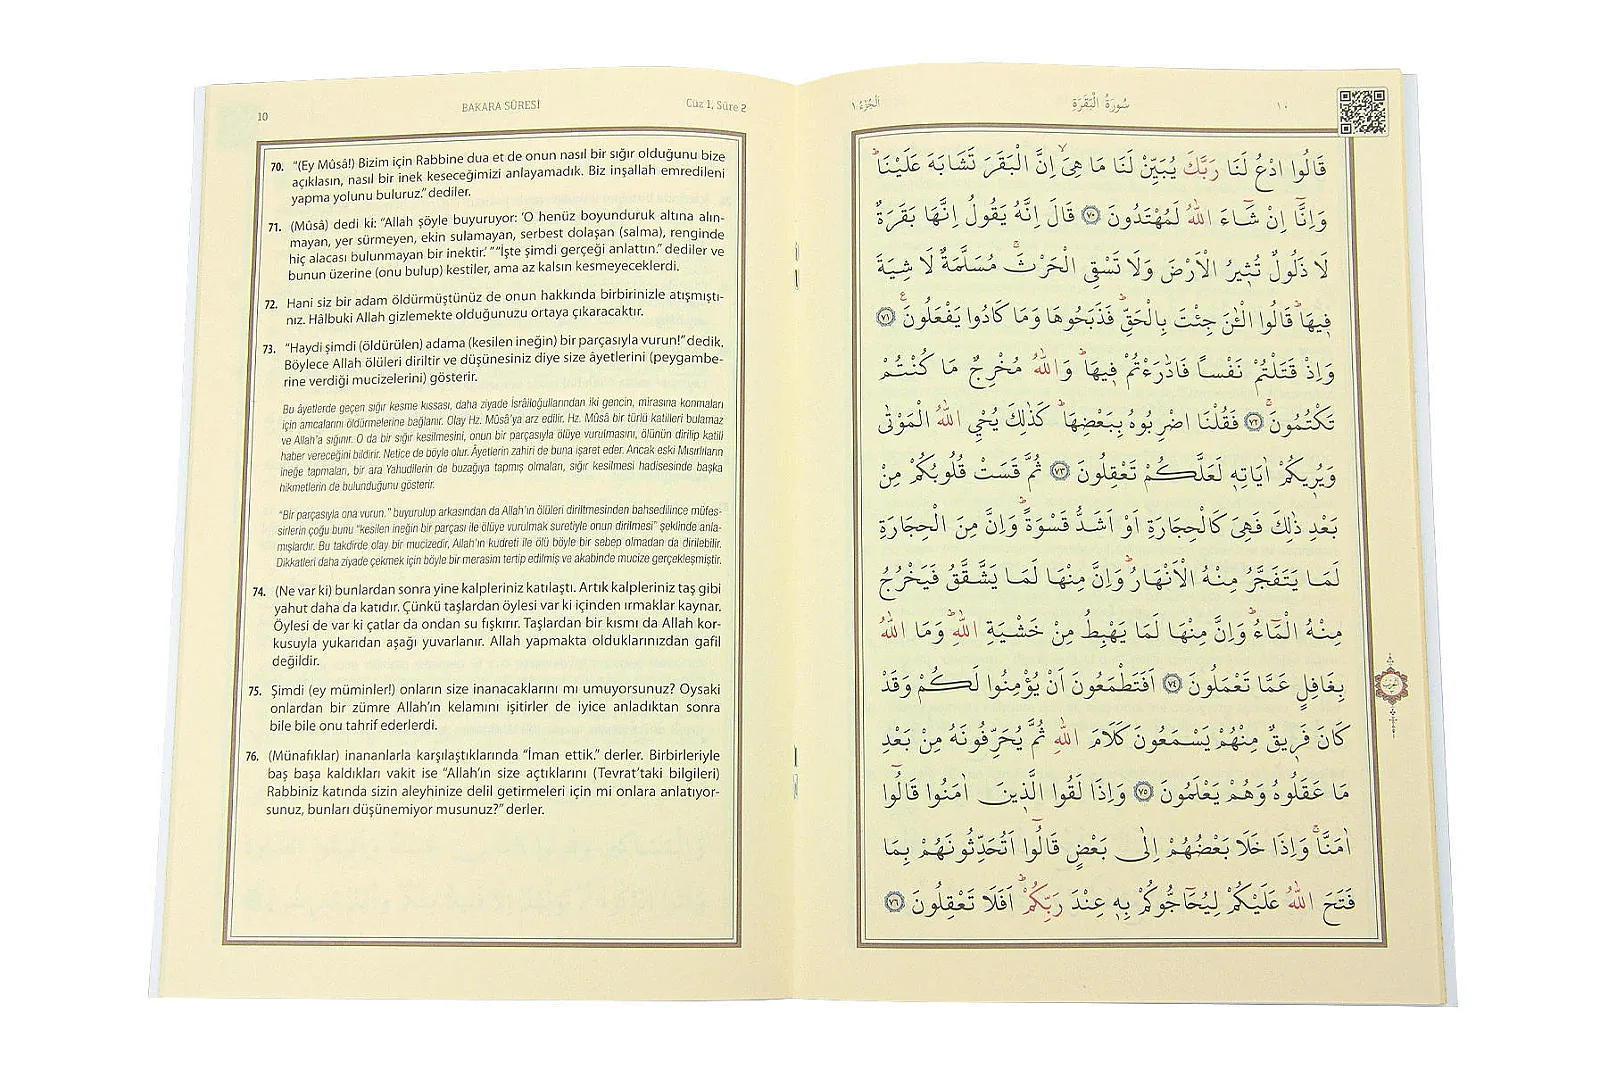 10
BAKARA SÛRESİ
Cüz 1, Sûre 2
70. "(Ey Mûsâ!) Bizim için Rabbine dua et de onun nasıl bir sığır olduğunu bize
açıklasın, nasıl bir inek keseceğimizi anlayamadık. Biz inşallah emredileni
yapma yolunu buluruz." dediler.
71. (Mûsâ) dedi ki: "Allah şöyle buyuruyor: 'O henüz boyunduruk altına alın-
mayan, yer sürmeyen, ekin sulamayan, serbest dolaşan (salma), renginde
hiç alacası bulunmayan bir inektir.' " "İşte şimdi gerçeği anlattın." dediler ve
bunun üzerine (onu bulup) kestiler, ama az kalsın kesmeyeceklerdi.
72. Hani siz bir adam öldürmüştünüz de onun hakkında birbirinizle atışmıştı-
nız. Hâlbuki Allah gizlemekte olduğunuzu ortaya çıkaracaktır.
73. "Haydi şimdi (öldürülen) adama (kesilen ineğin) bir parçasıyla vurun!" dedik.
Böylece Allah ölüleri diriltir ve düşünesiniz diye size âyetlerini (peygambe-
rine verdiği mucizelerini) gösterir.
Bu âyetlerde geçen sığır kesme kıssası, daha ziyade İsrâiloğullarından iki gencin, mirasına konmaları
için amcalarını öldürmelerine bağlanır. Olay Hz. Mûsâ'ya arz edilir. Hz. Mûsâ bir türlü katilleri bulamaz
ve Allah'a sığınır. O da bir sığır kesilmesini, onun bir parçasıyla ölüye vurulmasını, ölünün dirilip katili
haber vereceğini bildirir. Netice de böyle olur. Âyetlerin zahiri de buna işaret eder. Ancak eski Mısırlıların
ineğe tapmaları, bir ara Yahudilerin de buzağıya tapmış olmaları, sığır kesilmesi hadisesinde başka
hikmetlerin de bulunduğunu gösterir.
"Bir parçasıyla ona vurun." buyurulup arkasından da Allah'ın ölüleri diriltmesinden bahsedilince müfes-
sirlerin çoğu bunu "kesilen ineğin bir parçası ile ölüye vurulmak suretiyle onun dirilmesi" şeklinde anla-
mışlardır. Bu takdirde olay bir mucizedir, Allah'ın kudreti ile ölü böyle bir sebep olmadan da dirilebilir.
Dikkatleri daha ziyade çekmek için böyle bir merasim tertip edilmiş ve akabinde mucize gerçekleşmiştir.
74. (Ne var ki) bunlardan sonra yine kalpleriniz katılaştı. Artık kalpleriniz taş gibi
yahut daha da katıdır. Çünkü taşlardan öylesi var ki içinden ırmaklar kaynar.
Öylesi de var ki çatlar da ondan su fışkırır. Taşlardan bir kısmı da Allah kor-
kusuyla yukarıdan aşağı yuvarlanır. Allah yapmakta olduklarınızdan gafil
değildir.
75. Şimdi (ey müminler!) onların size inanacaklarını mı umuyorsunuz? Oysaki
onlardan bir zümre Allah'ın kelamını işitirler de iyice anladıktan sonra
bile bile onu tahrif ederlerdi.
76. (Münafıklar) inananlarla karşılaştıklarında "İman ettik." derler. Birbirleriyle
baş başa kaldıkları vakit ise "Allah'ın size açtıklarını (Tevrat'taki bilgileri)
Rabbiniz katında sizin aleyhinize delil getirmeleri için mi onlara anlatıyor-
sunuz, bunları düşünemiyor musunuz?" derler.
١٠
سُورَةُ الْبَقَرَةِ
اَلْجُزْءُ ١
قَالُوا ادْعُ لَنَا رَبَّكَ يُبَيِّنْ لَنَا مَا هِيَۙ اِنَّ الْبَقَرَ تَشَابَهَ عَلَيْنَاۜ
وَاِنَّٓا اِنْ شَٓاءَ اللّٰهُ لَمُهْتَدُونَ ﴿٧٠﴾ قَالَ اِنَّهُ يَقُولُ اِنَّهَا بَقَرَةٌ
لَا ذَلُولٌ تُثِيرُ الْاَرْضَ وَلَا تَسْقِي الْحَرْثَۚ مُسَلَّمَةٌ لَا شِيَةَ
فِيهَاۜ قَالُوا الْـٰٔنَ جِئْتَ بِالْحَقِّۜ فَذَبَحُوهَا وَمَا كَادُوا يَفْعَلُونَ۟ ﴿٧١﴾
وَاِذْ قَتَلْتُمْ نَفْساً فَادّٰرَءْتُمْ فِيهَاۜ وَاللّٰهُ مُخْرِجٌ مَا كُنْتُمْ
تَكْتُمُونَۚ ﴿٧٢﴾ فَقُلْنَا اضْرِبُوهُ بِبَعْضِهَاۜ كَذٰلِكَ يُحْيِ اللّٰهُ الْمَوْتٰى
وَيُرِيكُمْ اٰيَاتِهِ لَعَلَّكُمْ تَعْقِلُونَ ﴿٧٣﴾ ثُمَّ قَسَتْ قُلُوبُكُمْ مِنْ
بَعْدِ ذٰلِكَ فَهِيَ كَالْحِجَارَةِ اَوْ اَشَدُّ قَسْوَةًۜ وَاِنَّ مِنَ الْحِجَارَةِ
لَمَا يَتَفَجَّرُ مِنْهُ الْاَنْهَارُۜ وَاِنَّ مِنْهَا لَمَا يَشَّقَّقُ فَيَخْرُجُ
مِنْهُ الْمَٓاءُۜ وَاِنَّ مِنْهَا لَمَا يَهْبِطُ مِنْ خَشْيَةِ اللّٰهِۜ وَمَا اللّٰهُ
بِغَافِلٍ عَمَّا تَعْمَلُونَ ﴿٧٤﴾ اَفَتَطْمَعُونَ اَنْ يُؤْمِنُوا لَكُمْ وَقَدْ
كَانَ فَرِيقٌ مِنْهُمْ يَسْمَعُونَ كَلَامَ اللّٰهِ ثُمَّ يُحَرِّفُونَهُ مِنْ بَعْدِ
مَا عَقَلُوهُ وَهُمْ يَعْلَمُونَ ﴿٧٥﴾ وَاِذَا لَقُوا الَّذِينَ اٰمَنُوا قَالُٓوا
اٰمَنَّاۚ وَاِذَا خَلَا بَعْضُهُمْ اِلٰى بَعْضٍ قَالُٓوا اَتُحَدِّثُونَهُمْ بِمَا
فَتَحَ اللّٰهُ عَلَيْكُمْ لِيُحَٓاجُّوكُمْ بِهِ عِنْدَ رَبِّكُمْۜ اَفَلَا تَعْقِلُونَ ﴿٧٦﴾